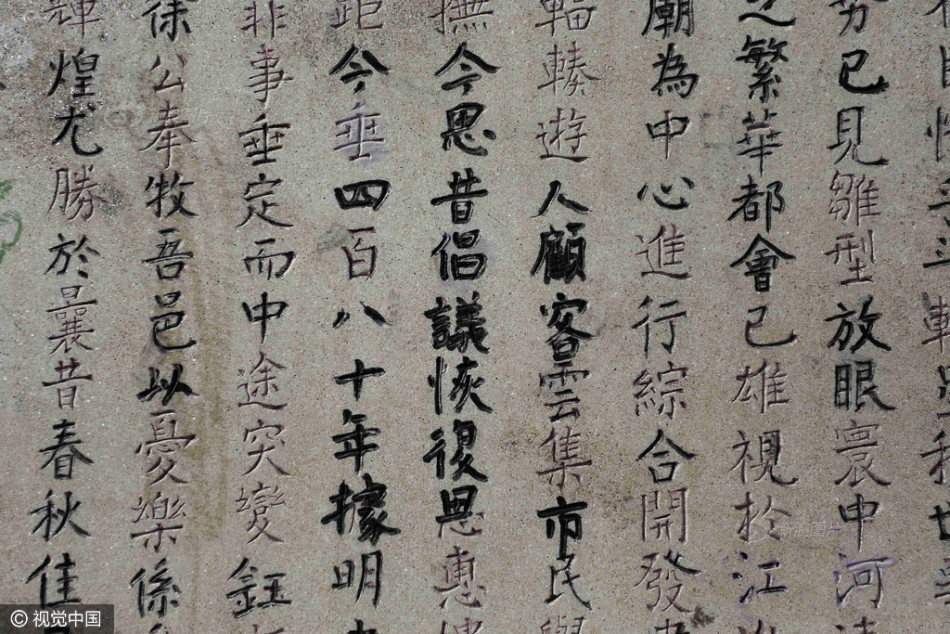 已見雛型放眼寰中河
之繁華都會已雄視於江
廟為中心進行綜合開發
輻輳遊人顧客雲集市民與
撫今思昔倡議恢復恩惠
距今垂四百八十年據明
事垂定而中途突變鈺
徐公奉牧吾邑以憂樂係
輝煌尤勝於曩昔春秋佳
© 视觉中国